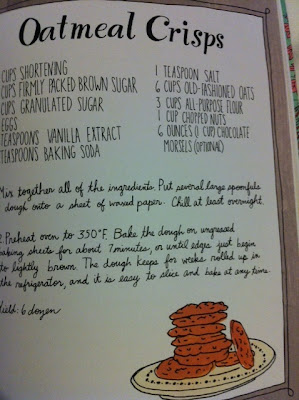 Oatmeal Crisps
CUPS SHORTENING
CUPS FIRMLY PACKED BROWN SUGAR
CUPS GRANULATED SUGAR
EGGS
TEASPOONS VANILLA EXTRACT
TEASPOONS BAKING SODA
1 TEASPOON SALT
6 CUPS OLD-FASHIONED OATS
3 CUPS ALL-PURPOSE FLOUR
1 CUP CHOPPED NUTS
6 OUNCES (1 CUP) CHOCOLATE
MORSELS (OPTIONAL)
Mix together all of the ingredients. Put several large spoonfuls
dough onto a sheet of waxed paper. Chill at least overnight.
Preheat oven to 350°F. Bake the dough on ungreased
baking sheets for about 7 minutes, or until edges just begin
to lightly brown. The dough keeps for weeks rolled up in
the refrigerator, and it is easy to slice and bake at any time.
Yield: 6 dozen